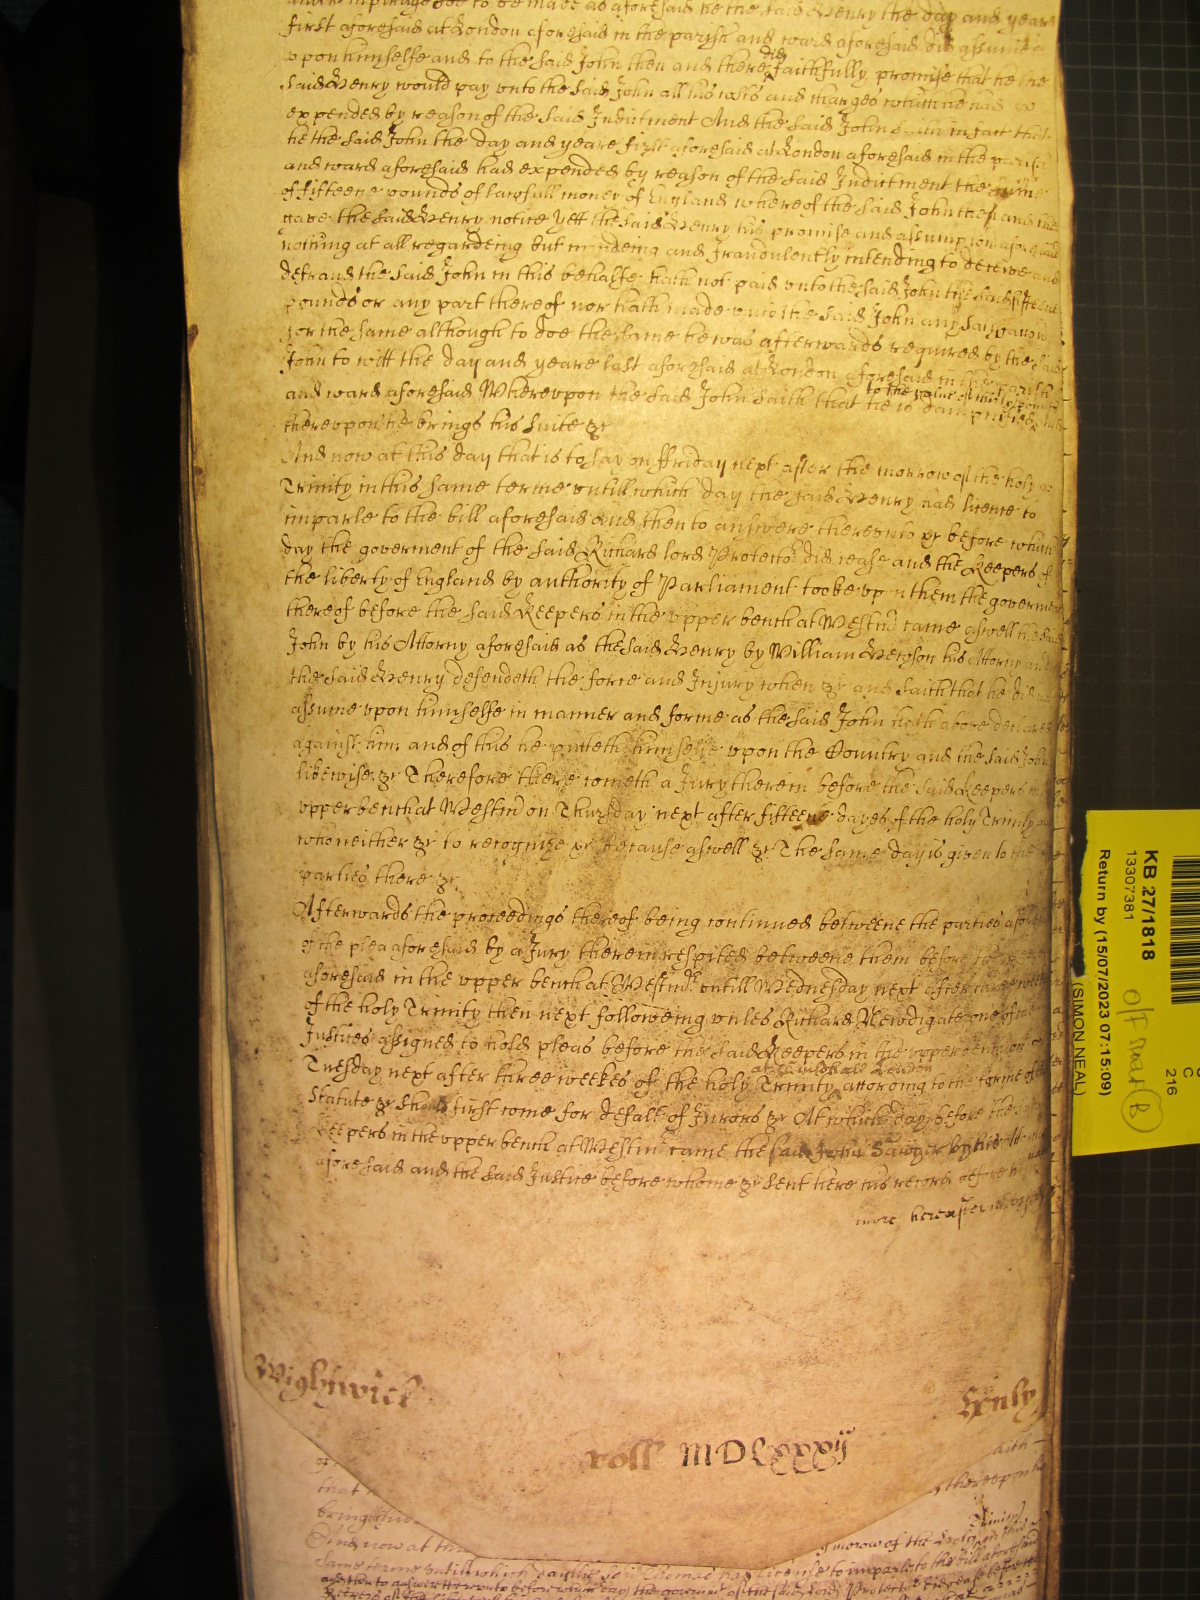 first aforesaid at London aforesaid in the parish and ward aforesaid did assume
vpon himselfe and to the said John then and there did faithfully promise that he the
said Henry would pay vnto the said John all his costs and charges which he had
expended by reason of the said Indictment And the said John saith in fact that
he the said John the day and yeare first aforesaid at London aforesaid in the parish
and ward aforesaid had expended by reason of the said Indictment the summe
of fifteene pounds of lawfull money of England whereof the said John then and there
gave the said Henry notice Yett the said Henry his promise and assumpcon aforesaid
nothing at all regardeing but intendeing and fraudulently intending to deceive and
defraud the said John in this behalfe hath not paid vnto the said John the said fifteene
pounds or any part thereof nor hath made vnto the said John any satisfaccon
for the same although to doe the same he was afterwards required by the said
John to witt the day and yeare last aforesaid at London aforesaid in the parish
and ward aforesaid Wherevpon the said John saith that he is dampnified
to the value of
therevpon he brings his suite &c
And now at this day that is to say on Friday next after the morrow of the holy
Trinity in this same terme vntill which day the said Henry had licence to
imparle to the bill aforesaid and then to answere therevnto &c before which
day the goverment of the said Richard lord Protector did cease and the Keepers of
the liberty of England by authority of Parliament tooke vpon them the goverment
thereof before the said Keepers in the vpper bench at Westm came aswell the said
John by his Attorny aforesaid as the said Henry by William Hewson his Attorny and
the said Henry defendeth the force and Injury when &c and saith that he did not
assume vpon himselfe in manner and forme as the said John hath above declared
against him and of this he putteth himselfe vpon the Country and the said John
likewise &c Therefore there cometh a Jury therein before the said Keepers in
vpper bench at Westm on Thursday next after fifteene dayes of the holy Trinity and
who neither &c to recognize &c because aswell &c The same day is given to the
parties there &c
Afterwards the proceedings thereof being continued betweene the parties aforesaid
of the plea aforesaid by a Jury therein respited betweene them before the Keepers
aforesaid in the vpper bench at Westm vntill Wednesday next after three weekes
of the holy Trinity then next followeing vnles Richard Newdigate one of the
Justices assigned to hold pleas before the said Keepers in the vpper bench on
Tuesday next after three weekes of the holy Trinity at Guildhall London according to the forme of the
Statute &c should first come for defalt of Jurors &c At which day before the said
Keepers in the vpper bench at Westm came the said John Sawyer by his Attorny
aforesaid and the said Justice before whome &c sent here his record before him
more hereafter
Wightwick
roll MDLxxxij
aith
therevpon he
that
bring
And now at this
morow of the holy in this
Trinity
same terme vntill which day the said Thomas had licence to imparle to the bill aforesaid
and then to answere therevnto before which day the goverment of the said lord Protector did cease before the
KB 27/1818
13307381
Return by (15/07/2023 07:15:09)
(SIMON NEAL)
C
216
B